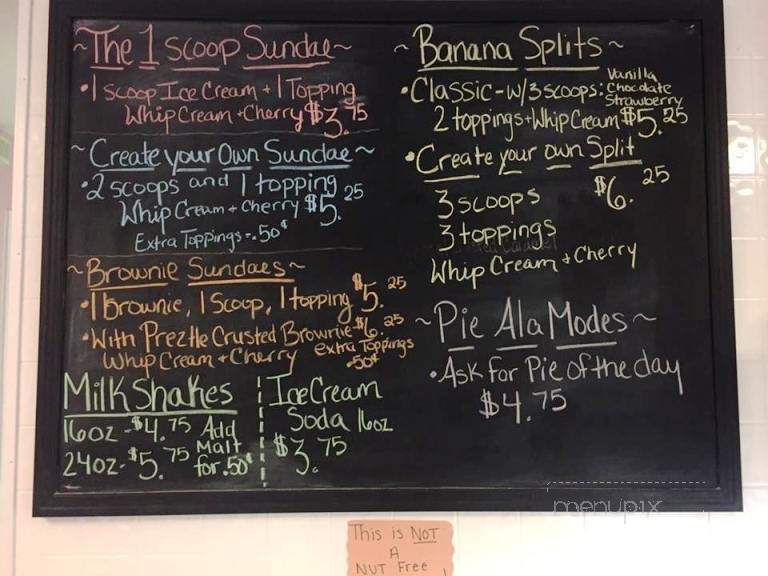 ~The 1 scoop Sundae~
•1 scoop Ice Cream + 1 Topping
Whip Cream + Cherry $3.75
~Create your Own Sundae~
•2 scoops and 1 topping
Whip Cream + Cherry $5.25
Extra Toppings - .50¢
~Brownie Sundaes~
•1 Brownie, 1 Scoop, 1 topping $5.25
•With Preztle Crusted Brownie $6.25
Whip Cream + Cherry extra Toppings
.50¢
Milk Shakes
16oz - $4.75 Add
Malt
24oz - $5.75 for .50¢
Ice Cream
Soda 16oz
$3.75
~Banana Splits~
•Classic - w/3 scoops: Vanilla
Chocolate
Strawberry
2 toppings + Whip Cream $5.25
•Create your own Split
$6.25
3 scoops
3 toppings
Whip Cream + Cherry
~Pie Ala Modes~
•Ask for Pie of the day
$4.75
menupix
This is NOT
A
NUT Free